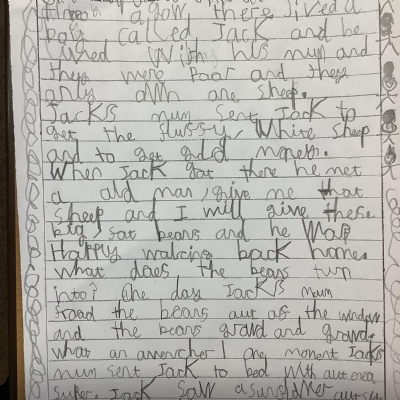 agow, there lived a
boy called Jack and he
lived With his mum and
they were Poor and they
only own one sheep.
Jacks mum sent Jack to
get the fluffy, White sheep
and to get gold moneys.
When Jack got there he met
a old man, give me that
sheep and I will give these
big, sat beans and he Was
Happy walking back home.
what does, the beans turn
into? One day Jacks mum
froad the beans out of the window
and the beans growd and growd.
what an! One moment Jacks
mum sent Jack to bed with out
super. Jack Saw a sunflower